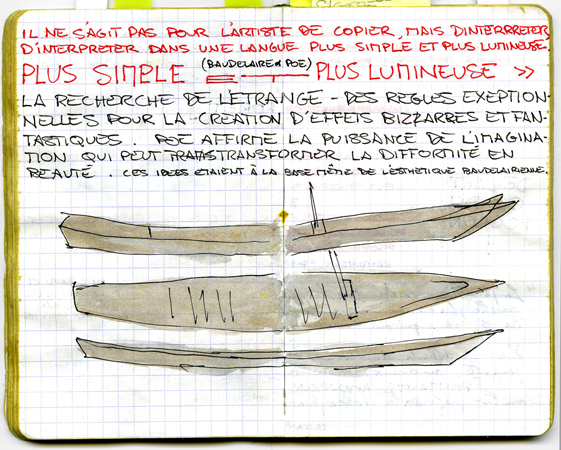 IL NE S'AGIT PAS POUR L'ARTISTE DE COPIER, MAIS D'INTERPRETER
D'INTERPRETER DANS UNE LANGUE PLUS SIMPLE ET PLUS LUMINEUSE.
PLUS SIMPLE (BAUDELAIRE POE) PLUS LUMINEUSE >>
LA RECHERCHE DE L'ETRANGE - DES REGLES EXEPTION-
NELLES POUR LA CREATION D'EFFETS BIZZARRES ET FAN-
TASTIQUES. POE AFFIRME LA PUISSANCE DE L'IMAGINA-
TION QUI PEUT TRANSFORMER LA DIFFORMITÉ EN
BEAUTÉ. CES IDEES ETAIENT À LA BASE MÊME DE L'ESTHETIQUE BAUDELAIRIENNE.